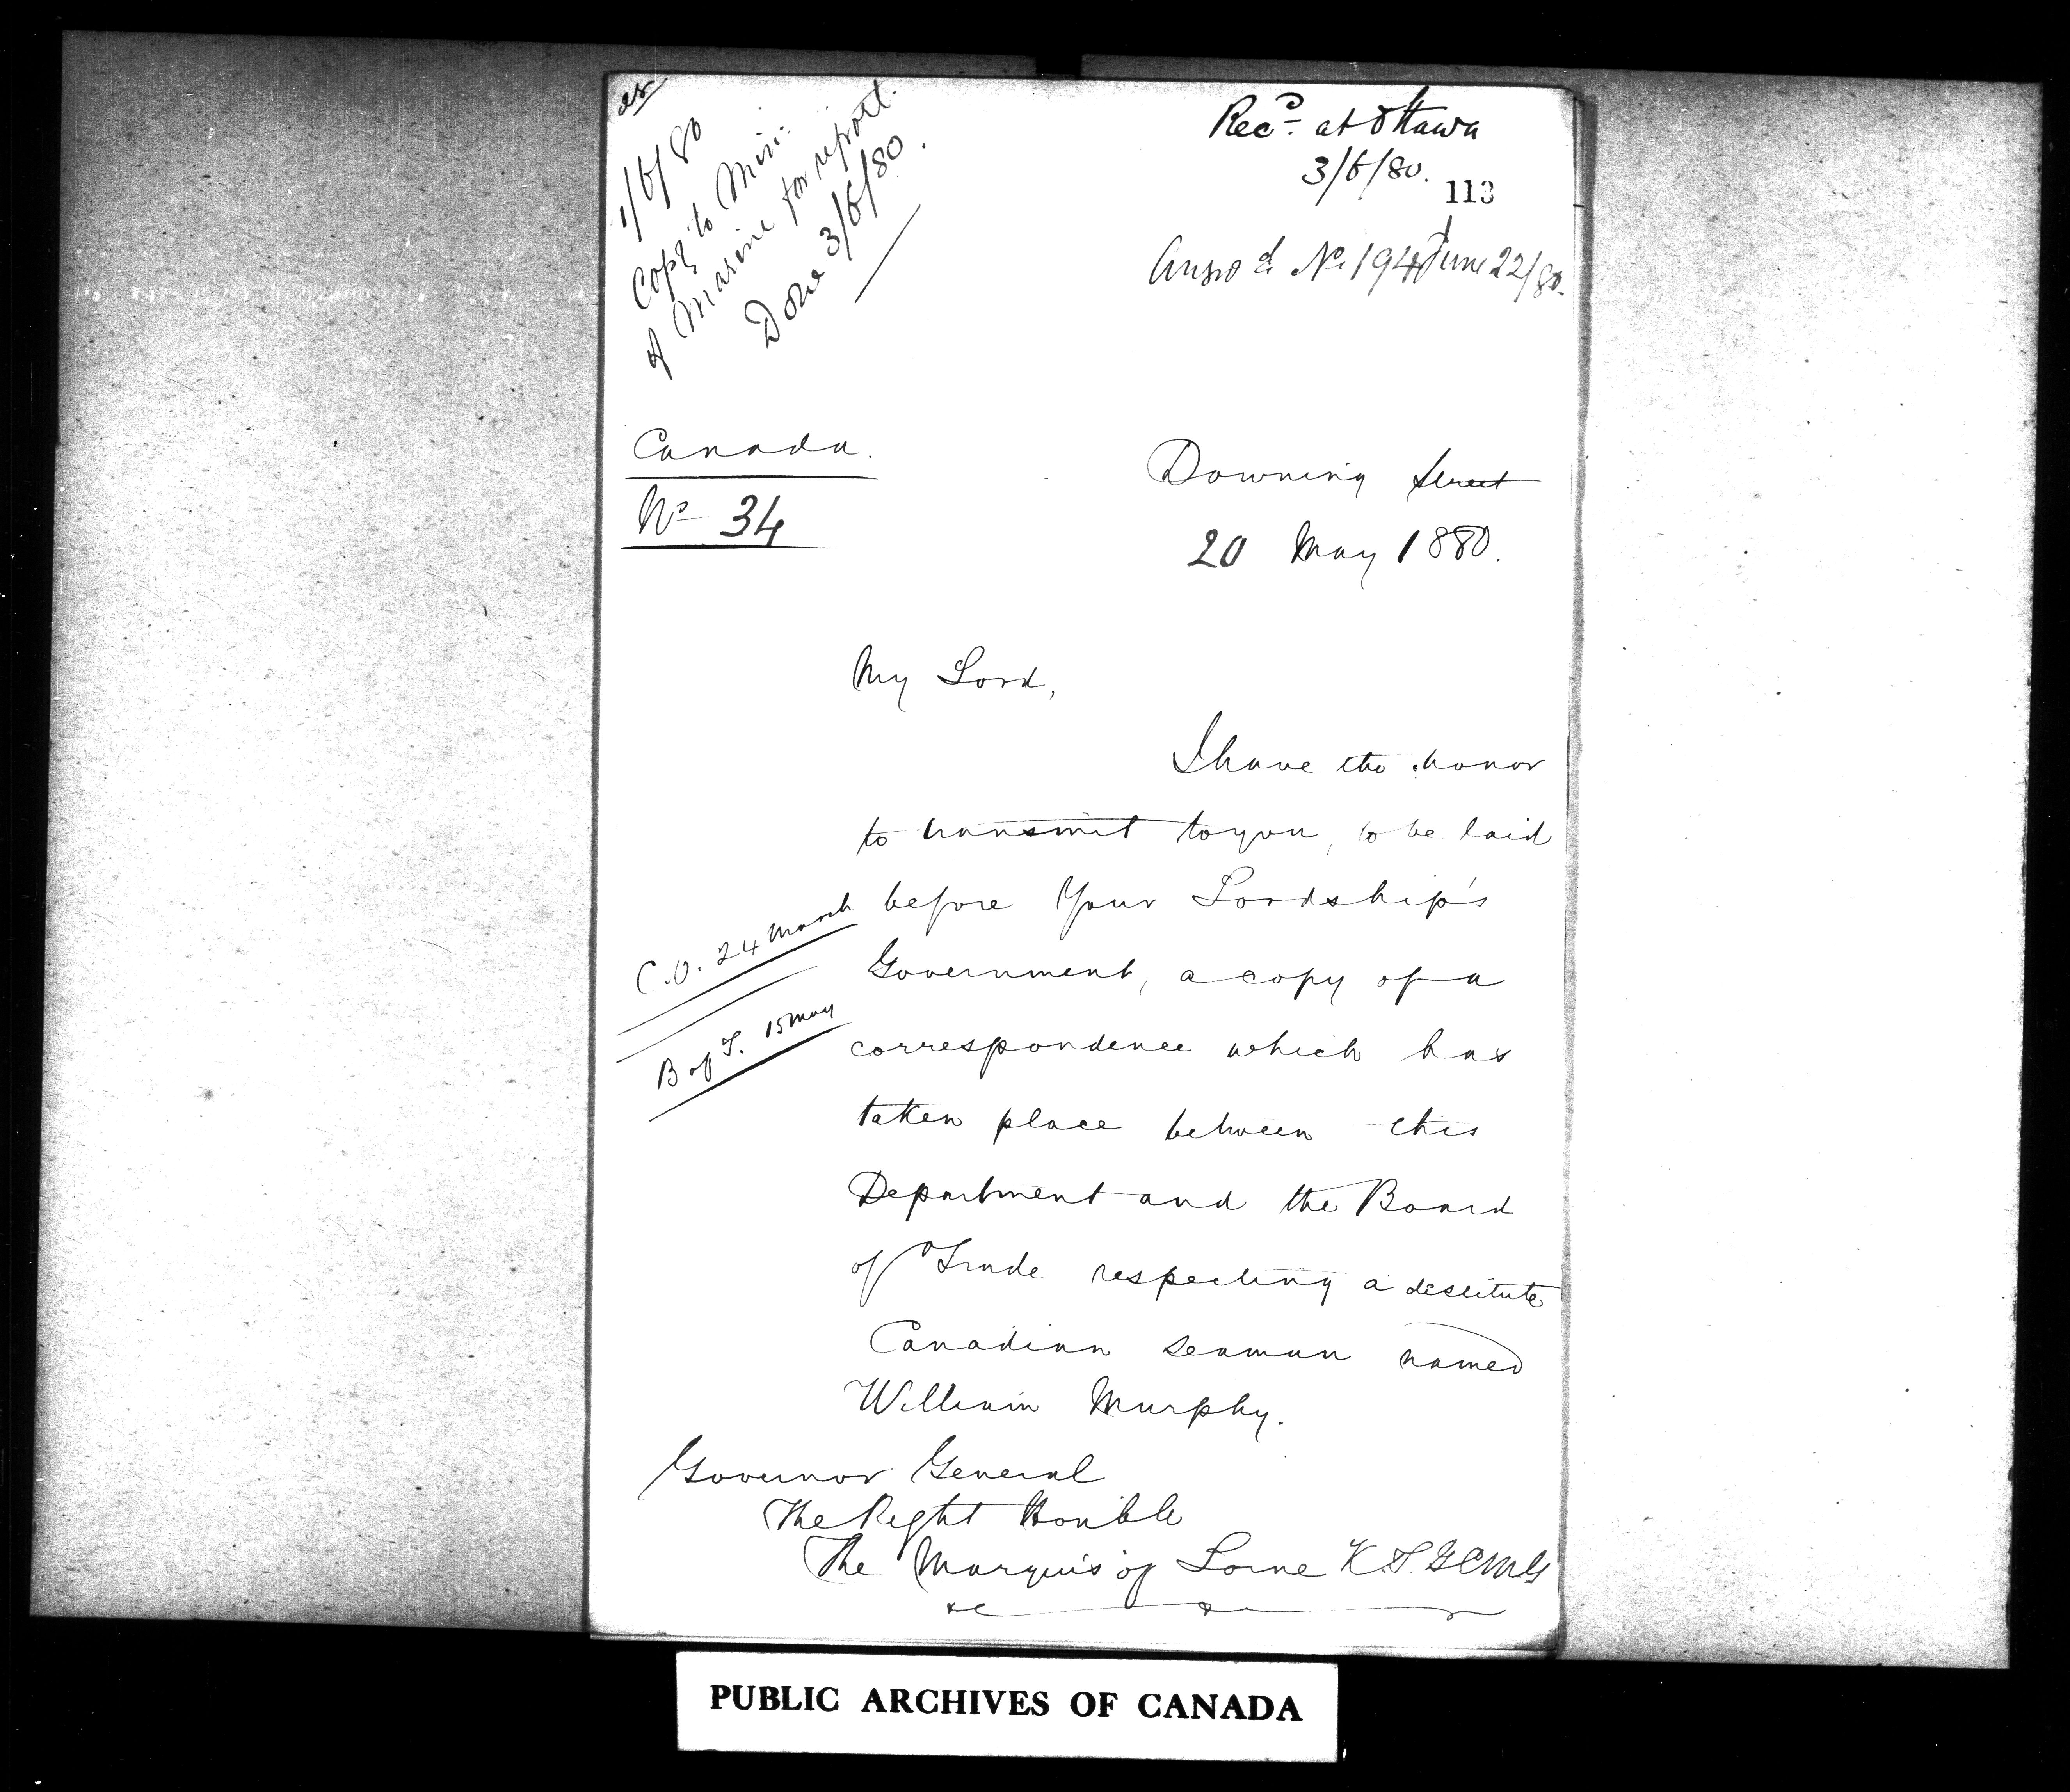 1/6/80
Copy to Min:
of Marine for report.
Done 3/6/80.
Recd. at Ottawa
3/6/80.
113
Answd. No 194 June 22/80.
Canada.
No 34
Downing Street
20 May 1880.
My Lord,
I have the honor
to transmit to you, to be laid
before Your Lordship's
C.O. 24 March
Government, a copy of a
B of T. 15 May
correspondence which has
taken place between this
Department and the Board
of Trade respecting a destitute
Canadian seaman named
William Murphy.
Governor General
The Right Honble
The Marquis of Lorne K.T. GCMG
&c &c &c
PUBLIC ARCHIVES OF CANADA